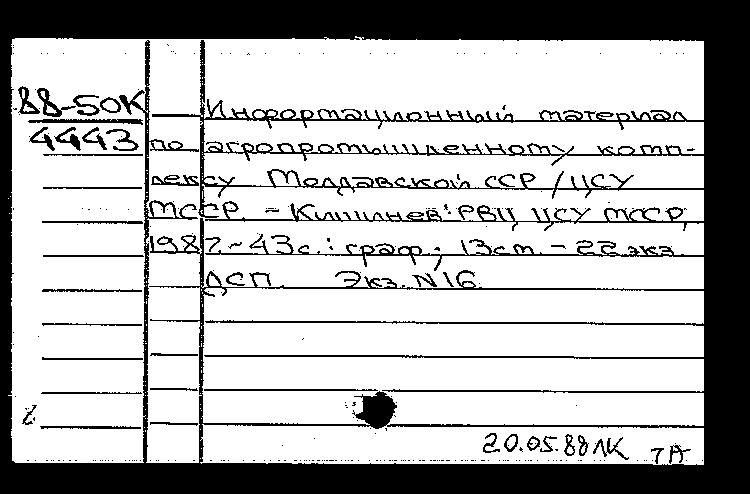 88-50К
4443
Информационный материал
по агропромышленному комп-
лексу Молдавской ССР / ЦСУ
МССР. - Кишинев: РВЦ ЦСУ МССР,
1987. - 43 с.: граф.; 13 см. - 22 экз.
ДСП. Экз. N 16.
20.05.88 ЛК ТА